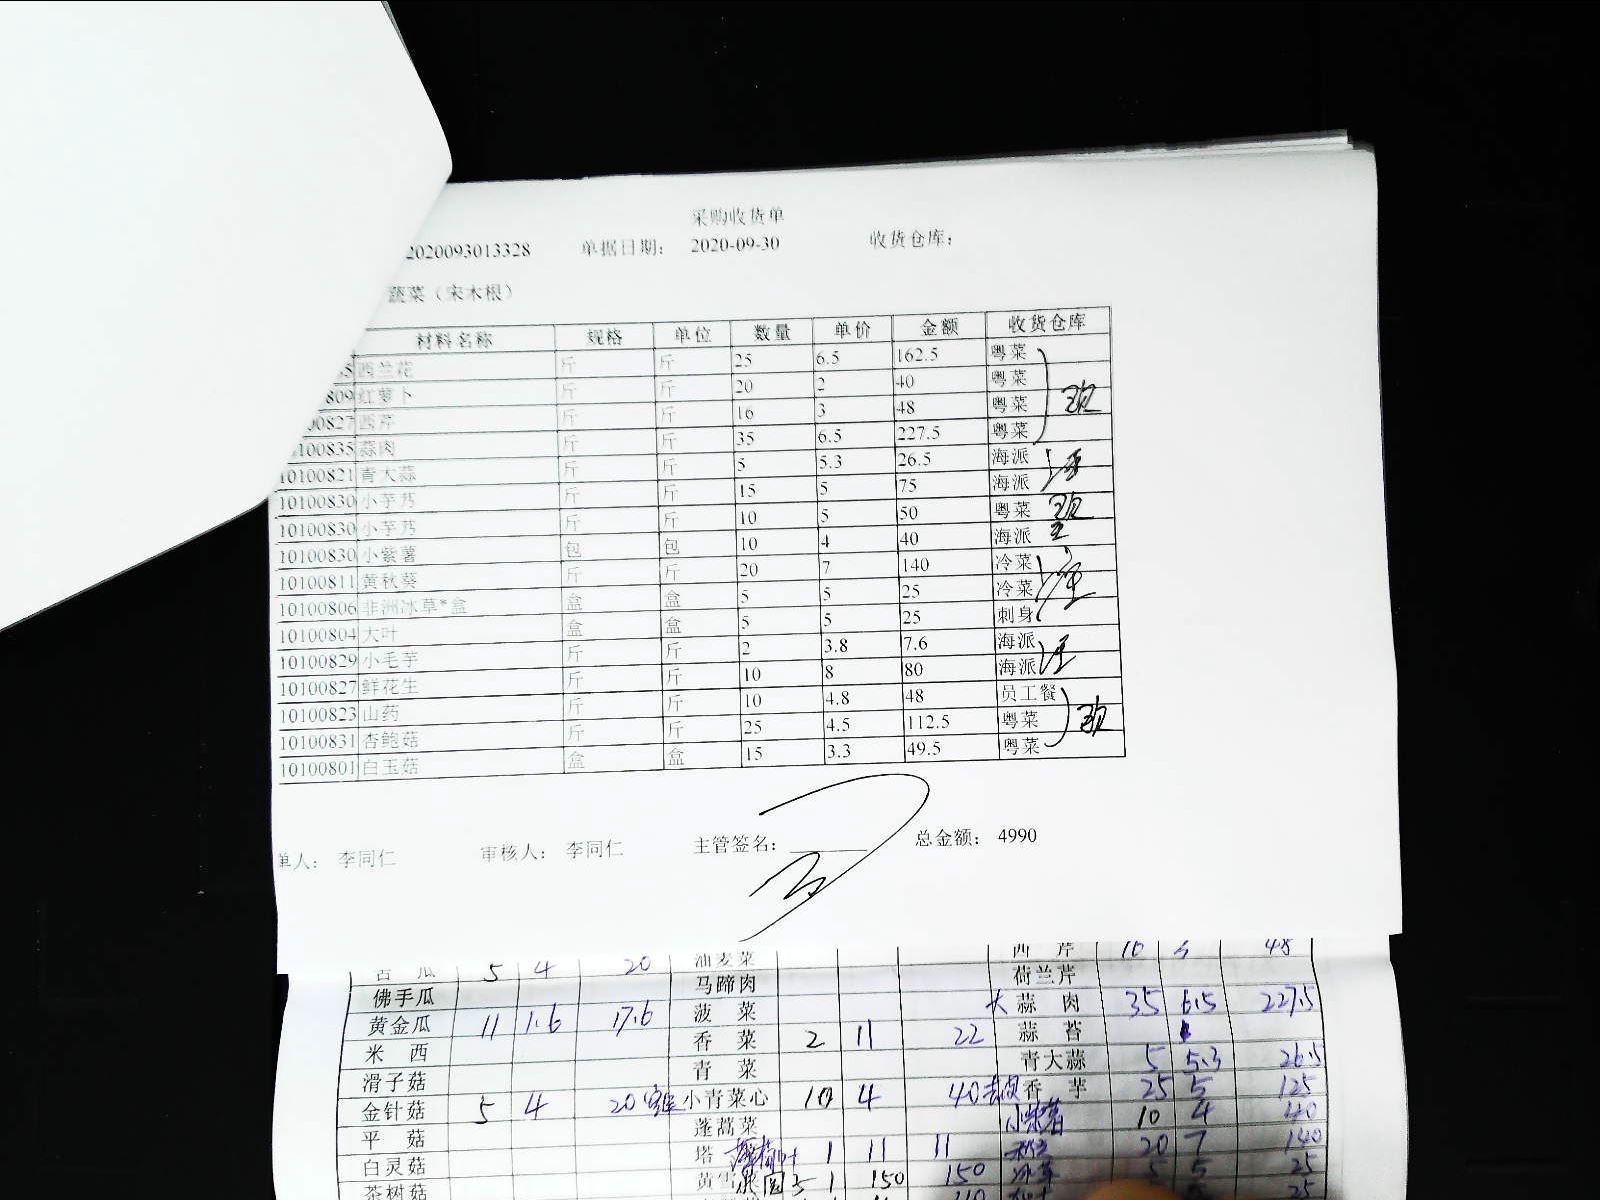 采购收货单
2020093013328 单据日期： 2020-09-30 收货仓库：
蔬菜（宋木根）
材料名称 规格 单位 数量 单价 金额 收货仓库
35 西兰花 斤 斤 25 6.5 162.5 粤菜
809 红萝卜 斤 斤 20 2 40 粤菜
00827 西芹 斤 斤 16 3 48 粤菜
10100835 蒜肉 斤 斤 35 6.5 227.5 粤菜
10100821 青大蒜 斤 斤 5 5.3 26.5 海派
10100830 小芋艿 斤 斤 15 5 75 海派
10100830 小芋艿 斤 斤 10 5 50 粤菜
10100830 小紫薯 包 包 10 4 40 海派
10100811 黄秋葵 斤 斤 20 7 140 冷菜
10100806 非洲冰草*盒 盒 盒 5 5 25 冷菜
10100804 大叶 盒 盒 5 5 25 刺身
10100829 小毛芋 斤 斤 2 3.8 7.6 海派
10100827 鲜花生 斤 斤 10 8 80 海派
10100823 山药 斤 斤 10 4.8 48 员工餐
10100831 杏鲍菇 斤 斤 25 4.5 112.5 粤菜
10100801 白玉菇 盒 盒 15 3.3 49.5 粤菜
单人： 李同仁 审核人： 李同仁 主管签名： 总金额： 4990
苦瓜 5 4 20 油麦菜 西芹 16 3 48
佛手瓜 马蹄肉 荷兰芹
黄金瓜 11 1.6 17.6 菠菜 大蒜肉 35 6.5 227.5
米西 香菜 2 11 22 蒜苔
滑子菇 青菜 青大蒜 5 5.3 26.5
金针菇 5 4 20 小青菜心 10 4 40 香芋 25 5 125
平菇 蓬蒿菜 10 4 40
白灵菇 塔 1 11 11 20 7 140
茶树菇 1 150 150 冰草 5 5 25